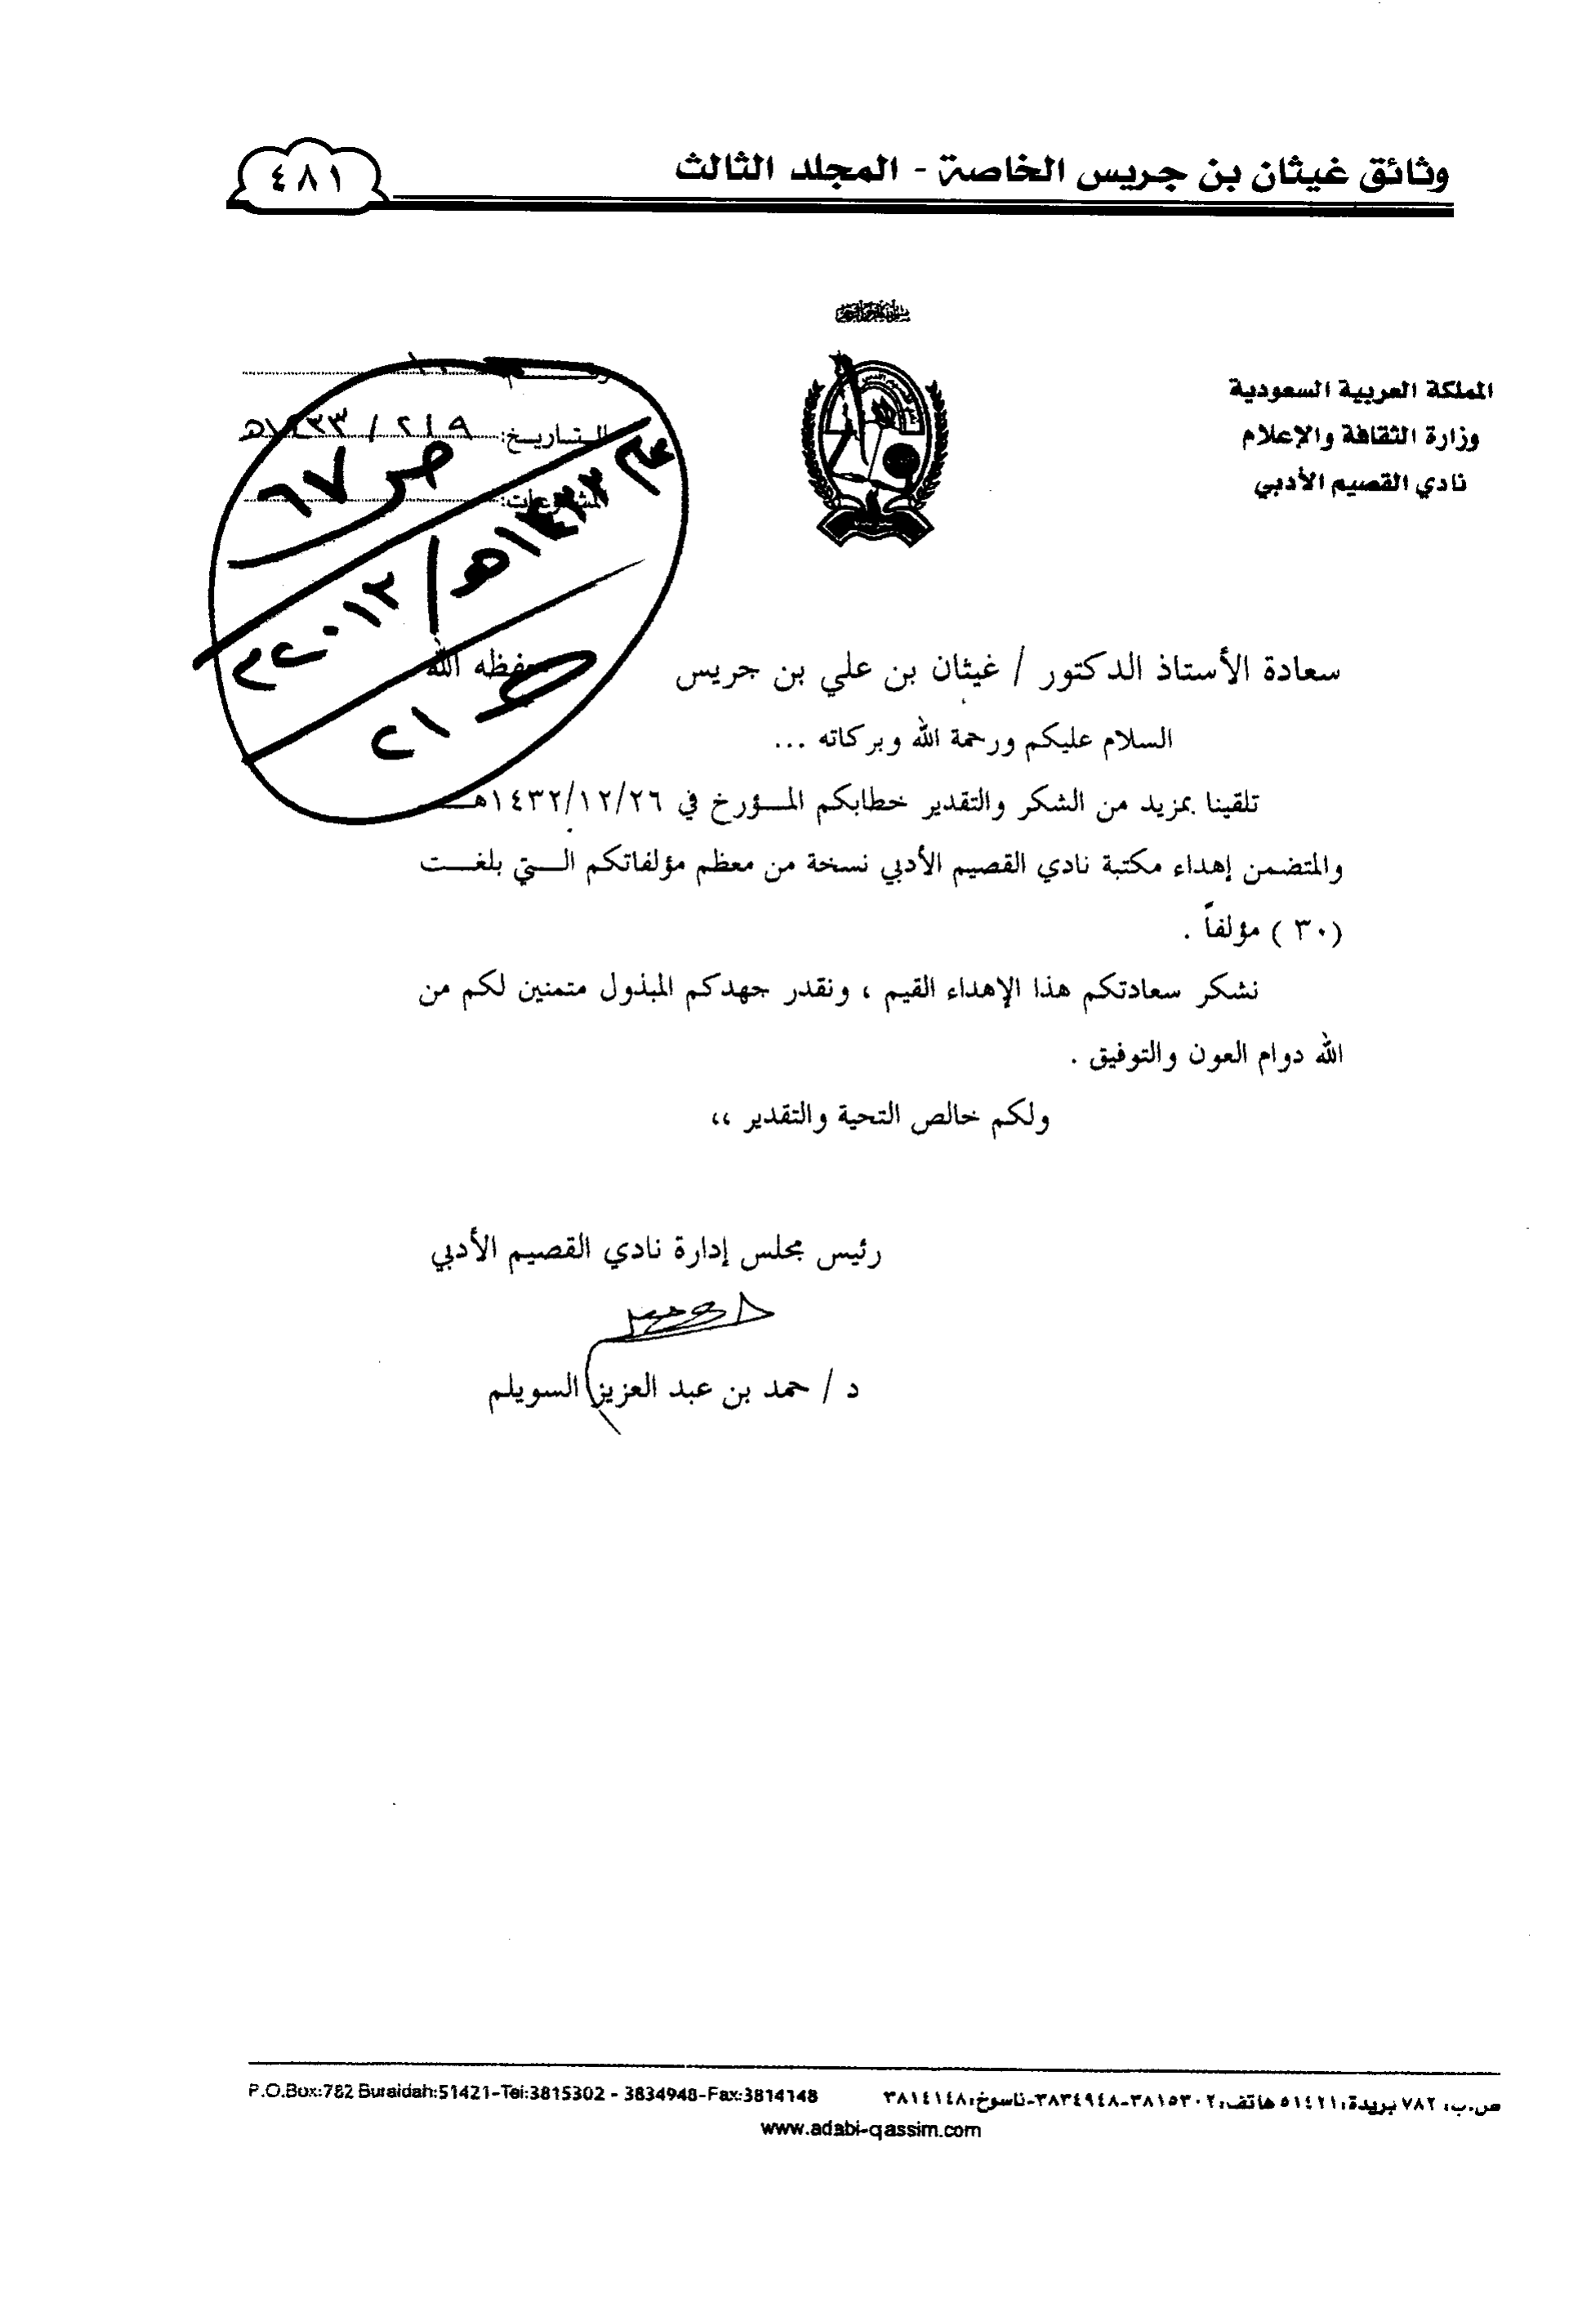 وثائق غيثان بن جريس الخاصة - المجلد الثالث
٤٨١
المملكة العربية السعودية
وزارة الثقافة والإعلام
نادي القصيم الأدبي
التاريخ: ٢/٩ / ١٤٣٣هـ
المشفوعات:
ص ٦٧
عام ١٤٣٣هـ / ٢٠١٢م
٢١
سعادة الأستاذ الدكتور / غيثان بن علي بن جريس حفظه الله
السلام عليكم ورحمة الله وبركاته ...
تلقينا بمزيد من الشكر والتقدير خطابكم المـؤرخ في ١٤٣٢/١٢/٢٦هـ
والمتضمن إهداء مكتبة نادي القصيم الأدبي نسخة من معظم مؤلفاتكم الـتي بلغـت
(٣٠ ) مؤلفاً .
نشكر سعادتكم هذا الإهداء القيم ، ونقدر جهدكم المبذول متمنين لكم من
الله دوام العون والتوفيق .
ولكم خالص التحية والتقدير ،،
رئيس مجلس إدارة نادي القصيم الأدبي
د / حمد بن عبد العزيز السويلم
ص.ب: ٧٨٢ بريدة: ٥١٤٢١ هاتف: ٣٨١٥٣٠٢-٣٨٣٤٩٤٨-ناسوخ: ٣٨١٤١٤٨
P.O.Box:782 Buraidah:51421-Tel:3815302 - 3834948-Fax:3814148
www.adabi-qassim.com